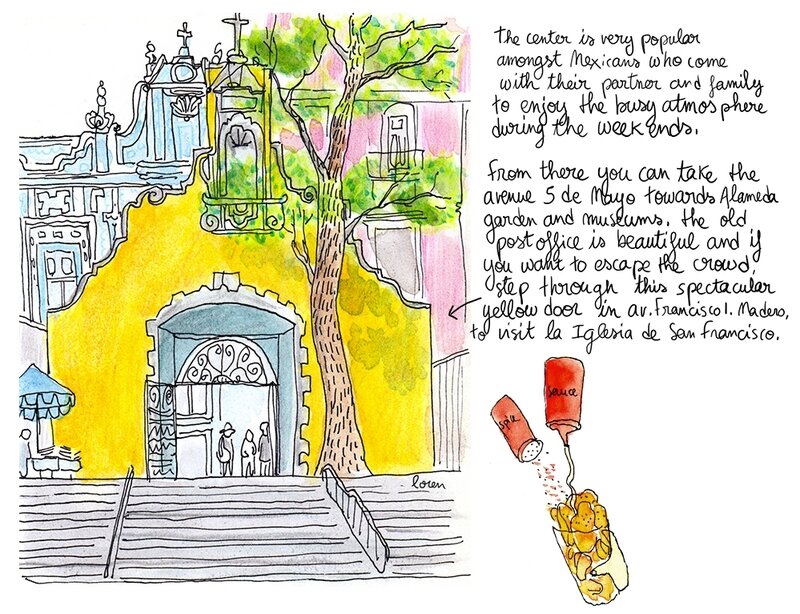 The center is very popular
amongst Mexicans who come
with their partner and family
to enjoy the busy atmosphere
during the weekends.
From there you can take the
avenue 5 de Mayo towards Alameda
garden and museums. The old
post office is beautiful and if
you want to escape the crowd,
step through this spectacular
yellow door in av. Francisco I. Madero,
to visit la Iglesia de San Francisco.
spice
sauce
loren